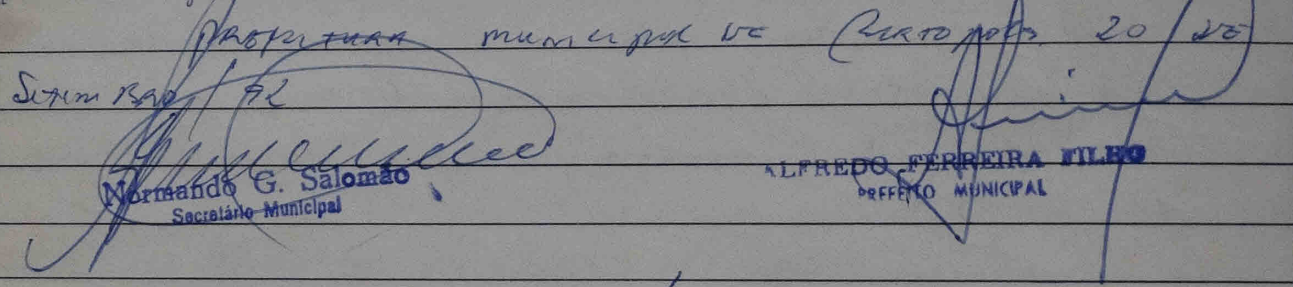 Prefeitura municipal de Crisopolis 20 / de
Setembro / 92
Normando G. Salomão
Secretário Municipal
ALFREDO FERREIRA FILHO
PREFEITO MUNICIPAL